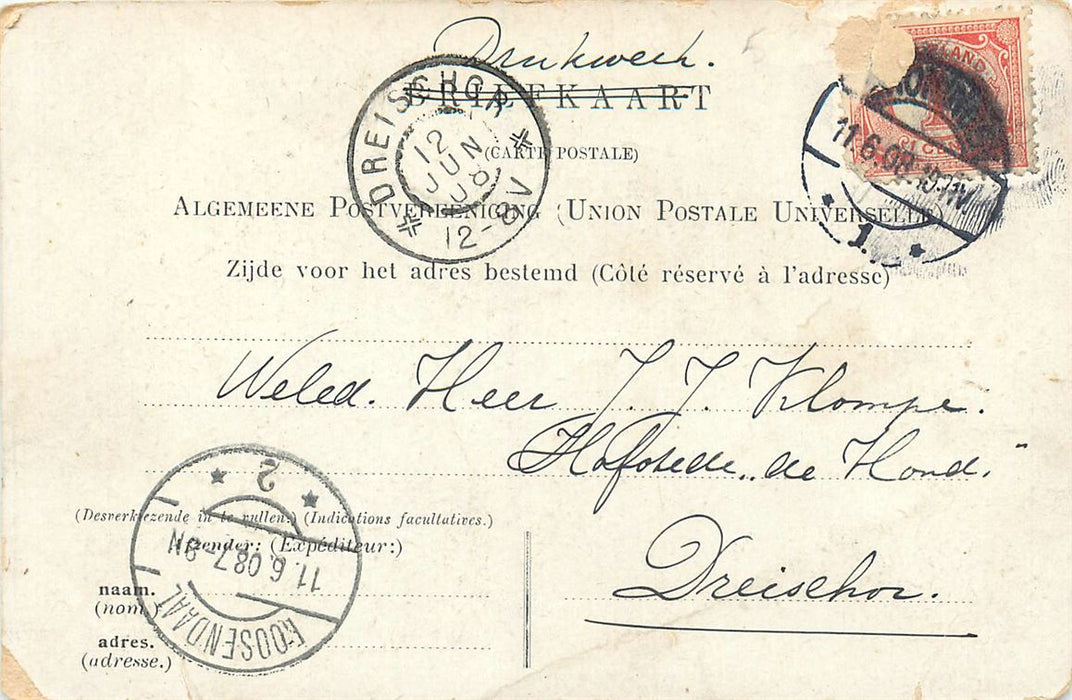 Drukwerk.
BRIEFKAART
(CARTE POSTALE)
ALGEMEENE POSTVEREENIGING (UNION POSTALE UNIVERSELLE)
Zijde voor het adres bestemd (Côté réservé à l'adresse)
DREISCHOR
12 JUN 08
12-8V
11.6.08
1
Weled. Heer J. J. Klompe.
Hofstede „de Hond."
Dreischor.
(Desverkiezende in te vullen:) (Indications facultatives.)
Afzender: (Expéditeur:)
naam.
(nom.)
adres.
(adresse.)
2
11.6.08 7-8N
ROOSENDAAL